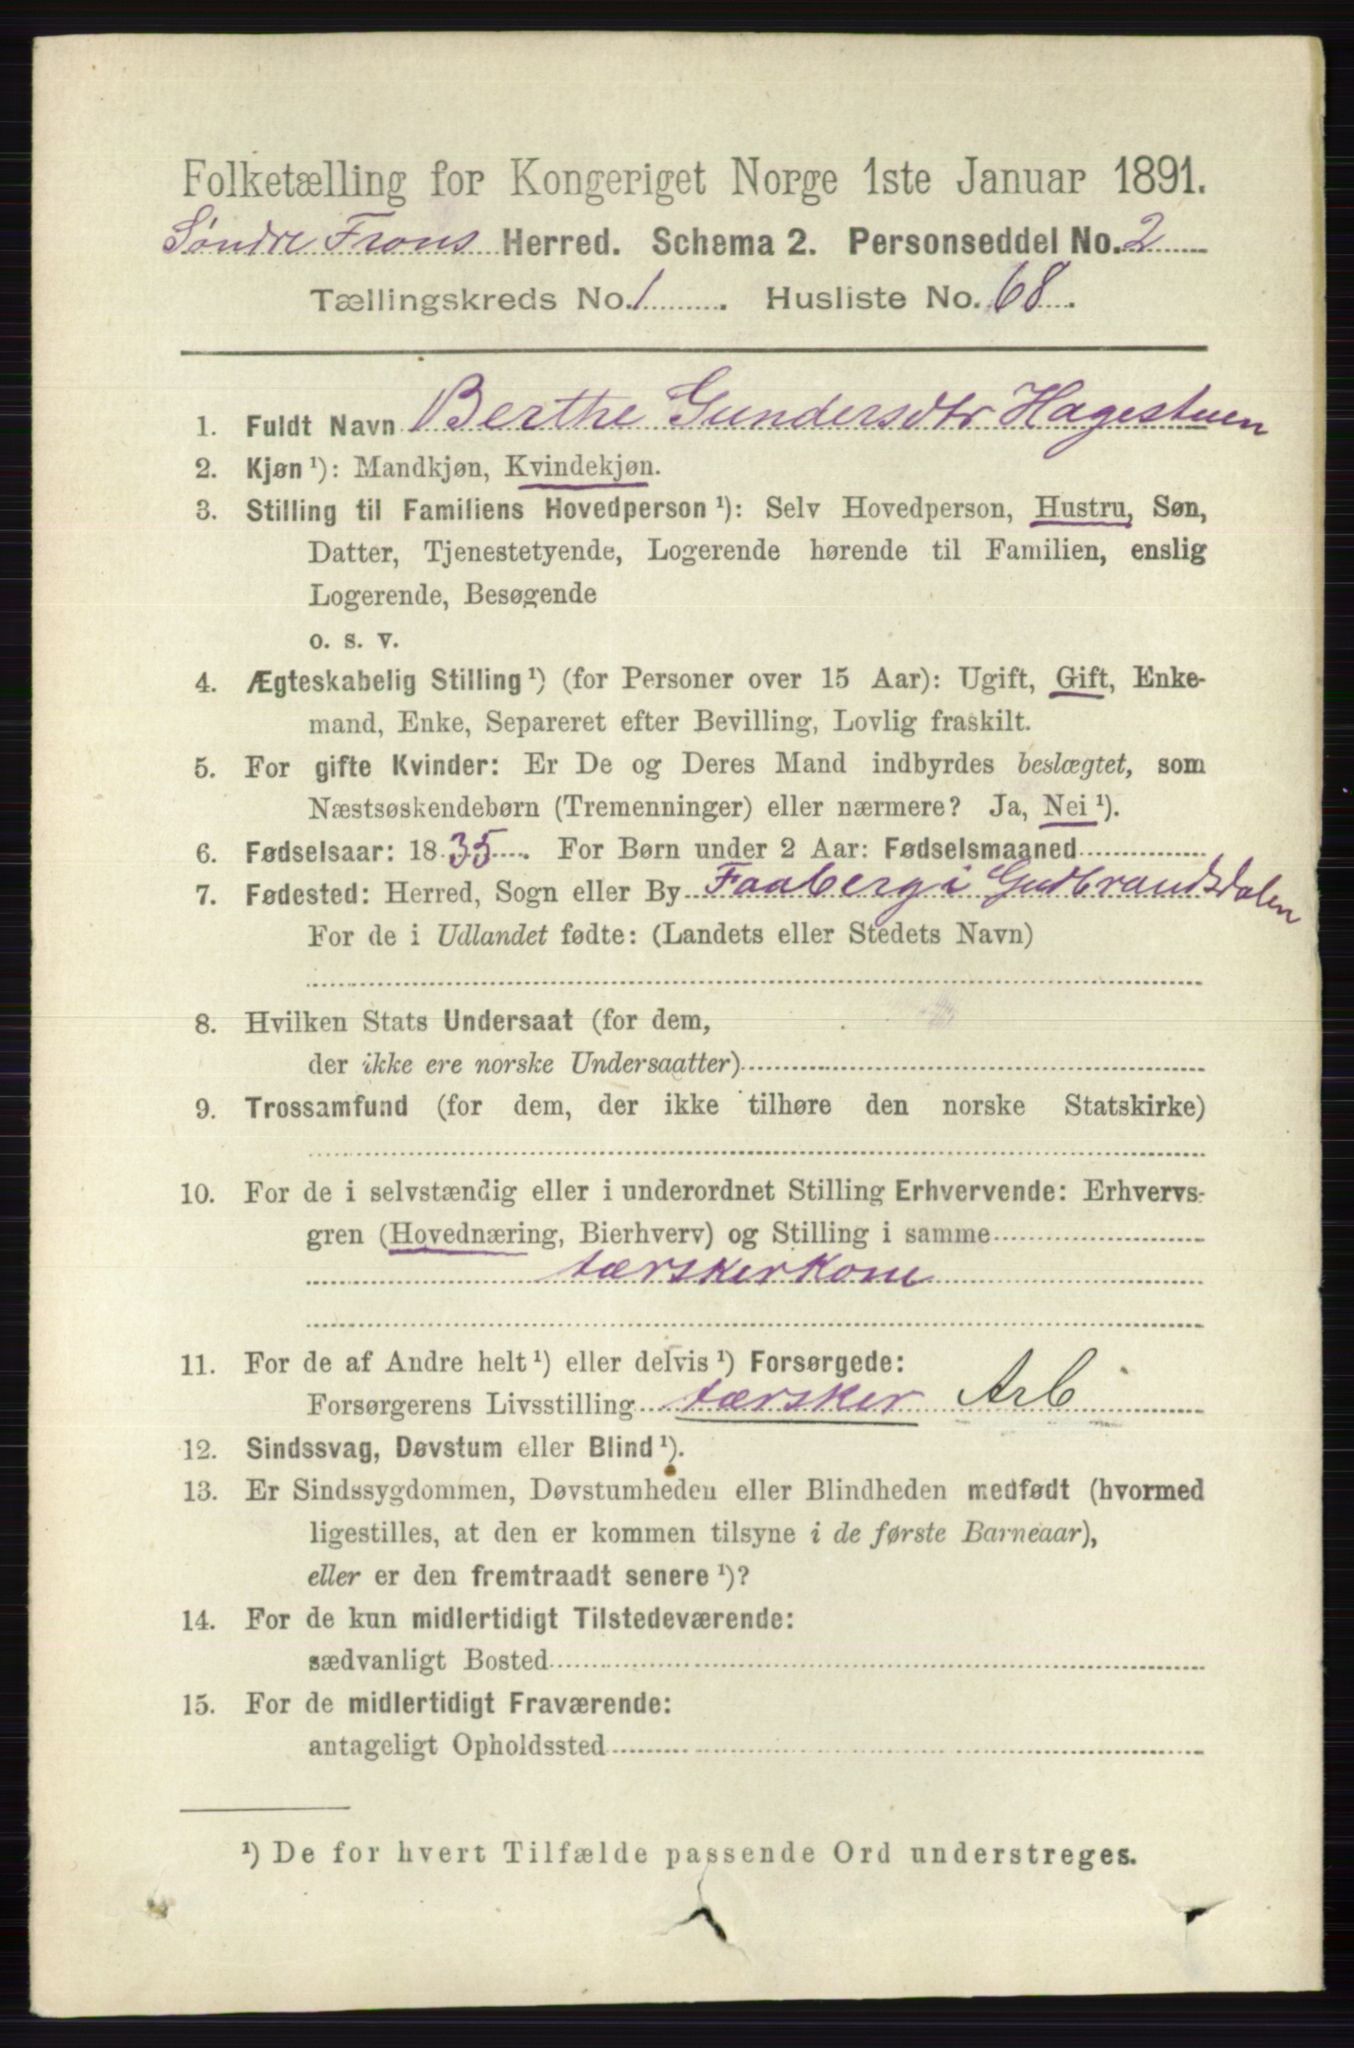 Folketælling for Kongeriget Norge 1ste Januar 1891.
Søndre Frons Herred. Schema 2. Personseddel No. 2
Tællingskreds No. 1. Husliste No. 68.
1. Fuldt Navn Berthe Gundersdtr Hagestuen
2. Kjøn ¹): Mandkjøn, Kvindekjøn.
3. Stilling til Familiens Hovedperson ¹): Selv Hovedperson, Hustru, Søn,
Datter, Tjenestetyende, Logerende hørende til Familien, enslig
Logerende, Besøgende
o. s. v.
4. Ægteskabelig Stilling ¹) (for Personer over 15 Aar): Ugift, Gift, Enke-
mand, Enke, Separeret efter Bevilling, Lovlig fraskilt.
5. For gifte Kvinder: Er De og Deres Mand indbyrdes beslægtet, som
Næstsøskendebørn (Tremenninger) eller nærmere? Ja, Nei ¹).
6. Fødselsaar: 1835. For Børn under 2 Aar: Fødselsmaaned
7. Fødested: Herred, Sogn eller By Faaberg i Gudbrandsdalen
For de i Udlandet fødte: (Landets eller Stedets Navn)
8. Hvilken Stats Undersaat (for dem,
der ikke ere norske Undersaatter)
9. Trossamfund (for dem, der ikke tilhøre den norske Statskirke)
10. For de i selvstændig eller i underordnet Stilling Erhvervende: Erhvervs-
gren (Hovednæring, Bierhverv) og Stilling i samme
tærskerkone
11. For de af Andre helt ¹) eller delvis ¹) Forsørgede:
Forsørgerens Livsstilling tærsker Arb
12. Sindssvag, Døvstum eller Blind ¹).
13. Er Sindssygdommen, Døvstumheden eller Blindheden medfødt (hvormed
ligestilles, at den er kommen tilsyne i de første Barneaar),
eller er den fremtraadt senere ¹)?
14. For de kun midlertidigt Tilstedeværende:
sædvanligt Bosted
15. For de midlertidigt Fraværende:
antageligt Opholdssted
¹) De for hvert Tilfælde passende Ord understreges.